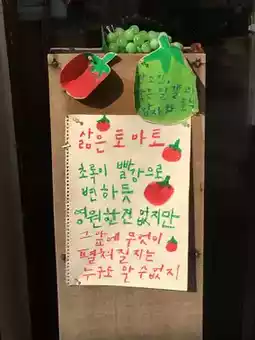 감자와
삶은 토마토
초록이 빨강으로
변하듯
영원한건 없지만
그 앞에 무엇이
펼쳐질지는
누구도 알 수 없지